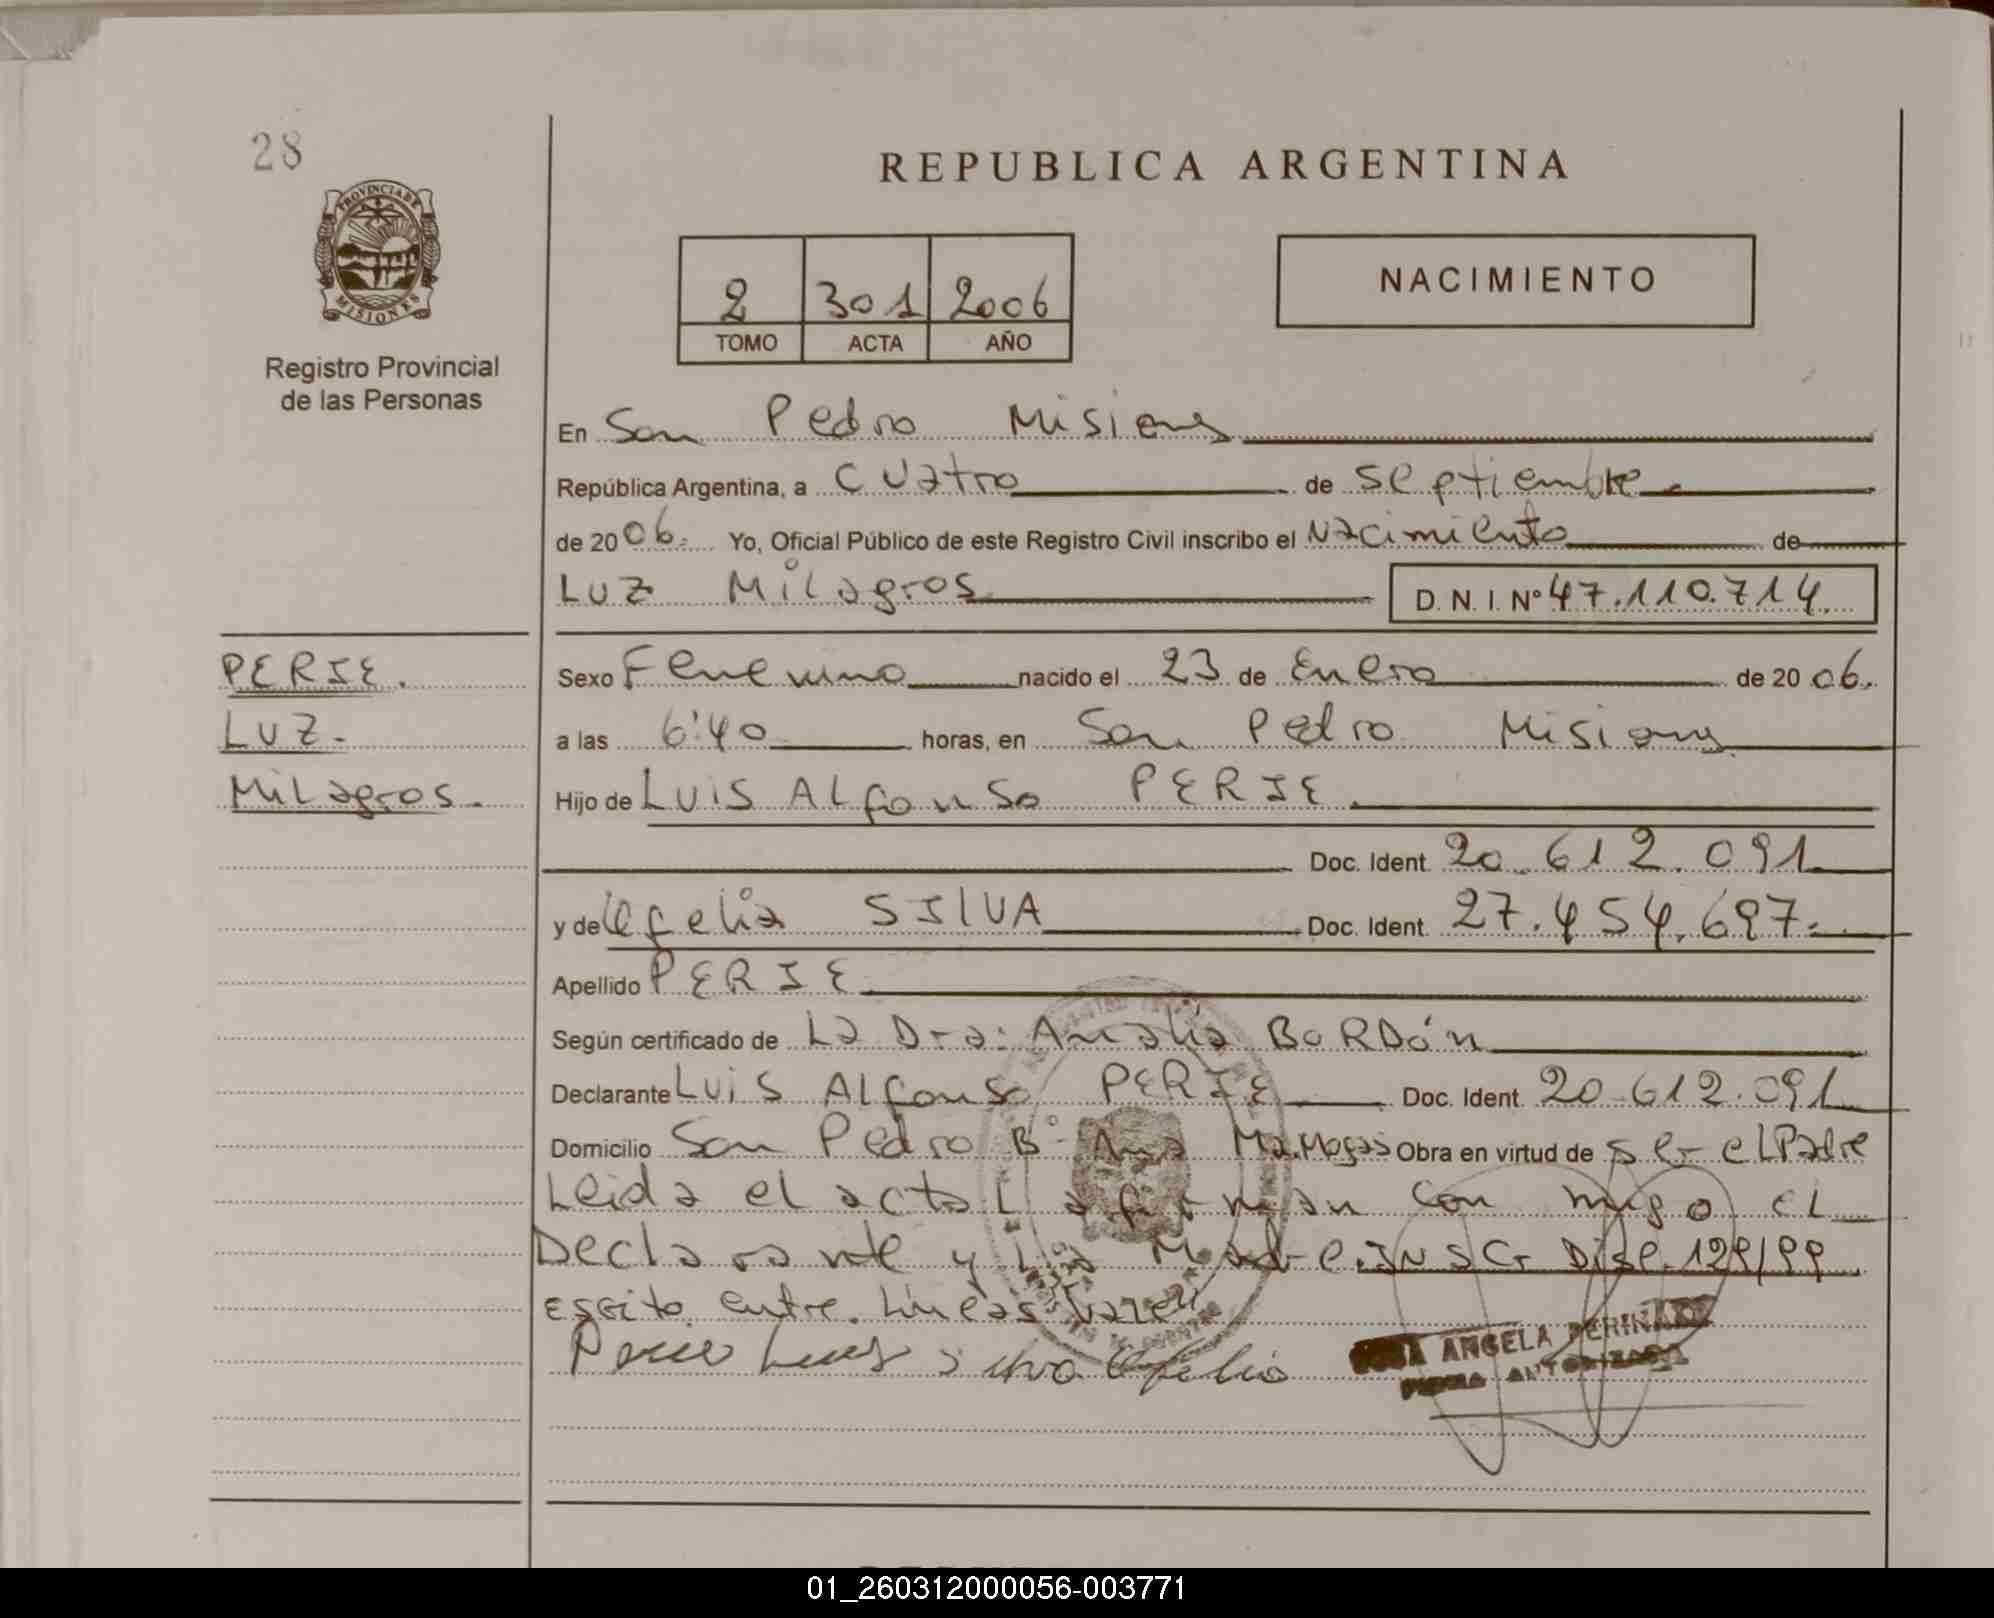 28
REPUBLICA ARGENTINA
PROVINCIA DE
MISIONES
Registro Provincial
de las Personas
2 301 2006
TOMO ACTA AÑO
NACIMIENTO
En San Pedro Misiones
República Argentina, a cuatro de septiembre
de 2006. Yo, Oficial Público de este Registro Civil inscribo el Nacimiento de
LUZ Milagros D. N. I. Nº 47.110.714.
PERIE.
LUZ.
Milagros.
Sexo Femenino nacido el 23 de Enero de 2006.
a las 6:40 horas, en San Pedro Misiones
Hijo de LUIS ALfonso PERIE.
Doc. Ident. 20.612.091
y de Ofelia SILVA Doc. Ident. 27.454.697.
Apellido PERIE
Según certificado de La Dra: Analia BORDón
Declarante LUIS ALfonso PERIE Doc. Ident. 20.612.091
Domicilio San Pedro Bº Ana Obra en virtud de ser el Padre
Leida el acta La firman con migo el
Declarante y La Madre. INSCr Disp. 129/99
escrito entre Lineas
Luis Silva Ofelia
ANGELA
FIRMA AUTORIZADA
01_260312000056-003771